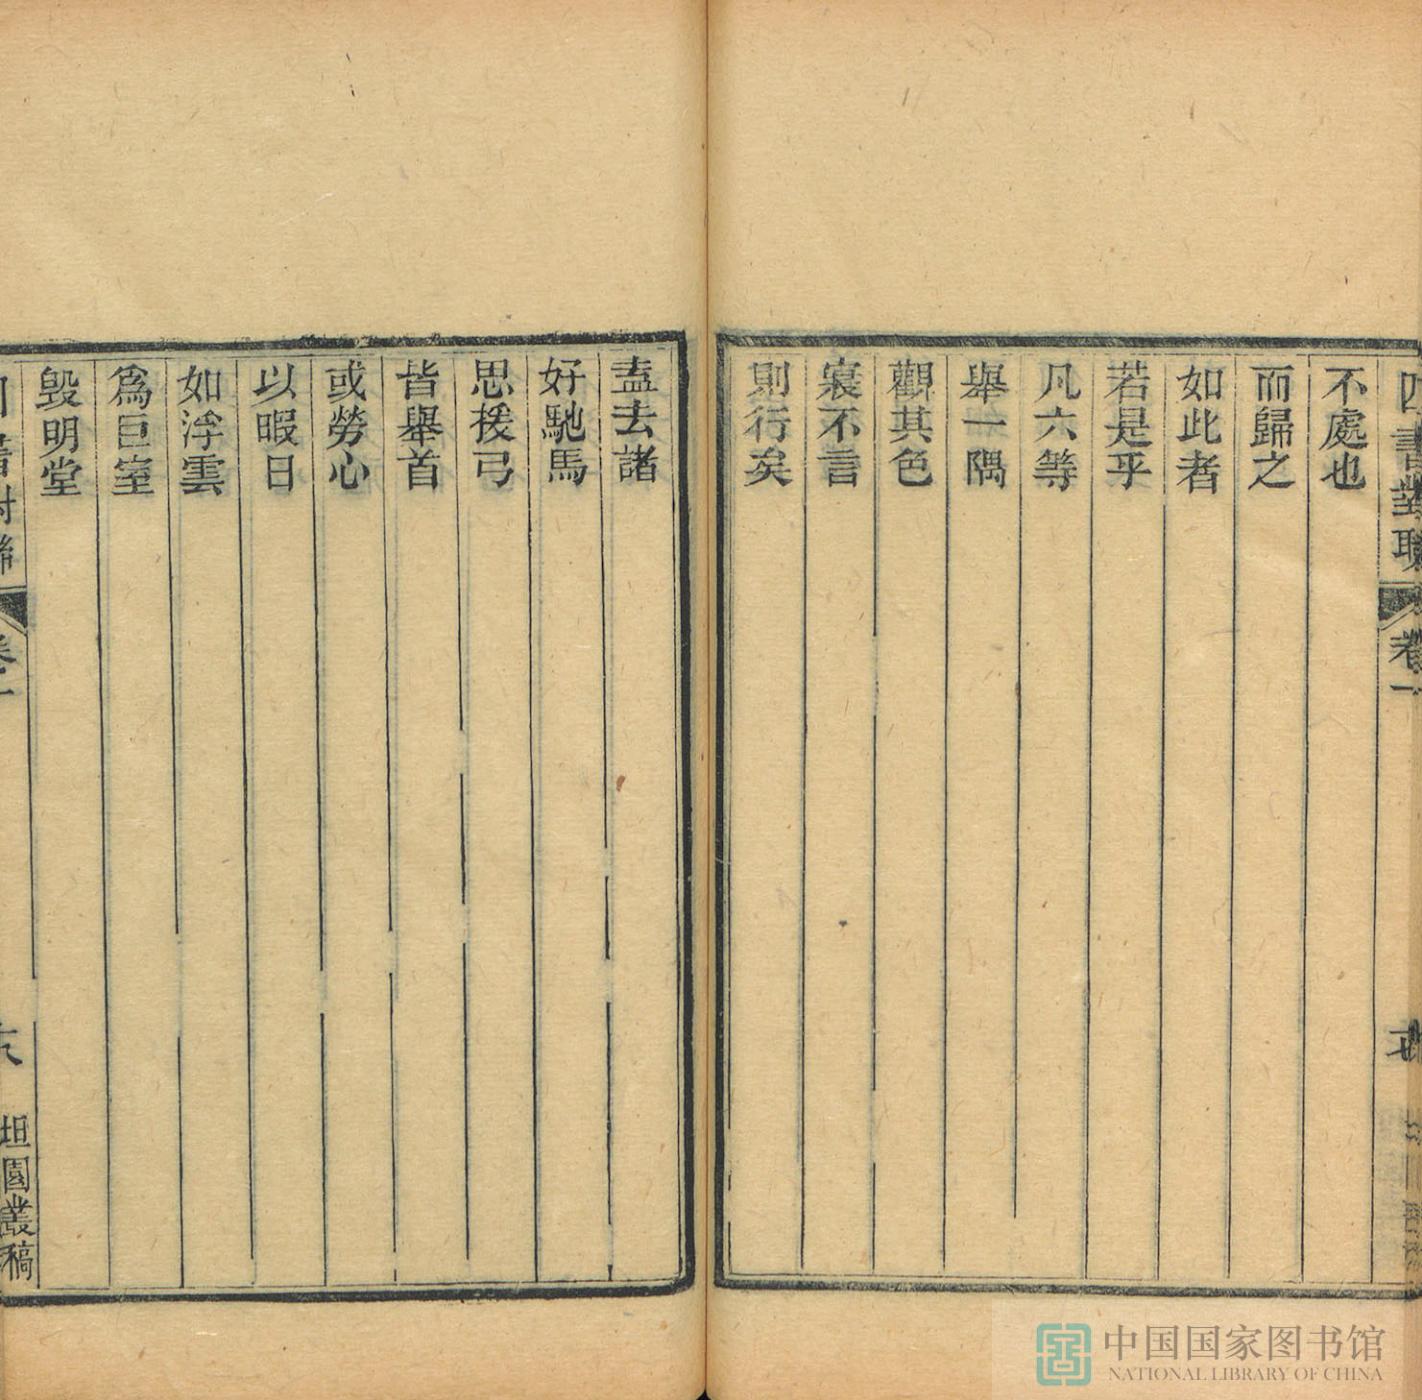 四書對聯 卷一
不處也
而歸之
如此者
若是乎
凡六等
舉一隅
觀其色
寢不言
則行矣
盍去諸
好馳馬
思援弓
皆舉首
或勞心
以暇日
如浮雲
爲巨室
毀明堂
四書對聯 卷一 坦園叢稿
中国国家图书馆
NATIONAL LIBRARY OF CHINA